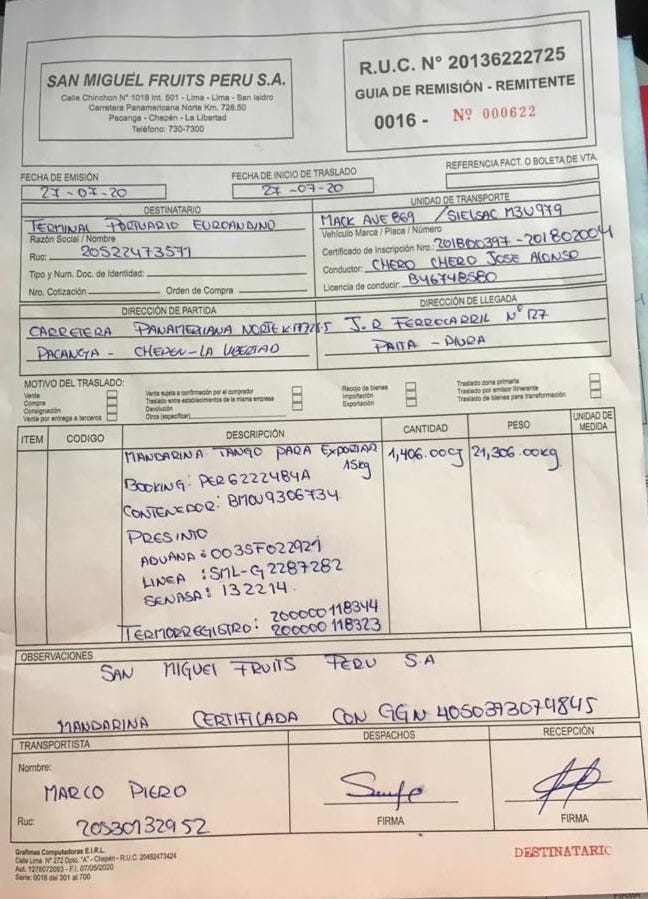 SAN MIGUEL FRUITS PERU S.A.
Calle Chinchon N° 1018 Int. 501 - Lima - Lima - San Isidro
Carretera Panamericana Norte Km. 728.50
Pacanga - Chepén - La Libertad
Teléfono: 730-7300
R.U.C. N° 20136222725
GUIA DE REMISIÓN - REMITENTE
0016 - Nº 000622
FECHA DE EMISIÓN
27-07-20
FECHA DE INICIO DE TRASLADO
27-07-20
REFERENCIA FACT. O BOLETA DE VTA.
DESTINATARIO
TERMINAL PORTUARIO EUROANDINO
Razón Social / Nombre
Ruc: 20522473571
Tipo y Num. Doc. de Identidad:
Nro. Cotización Orden de Compra
UNIDAD DE TRANSPORTE
MACK AVE 869 / SIELSAC M3U979
Vehículo Marca / Placa / Número
Certificado de Inscripción Nro.: 201800397-201802004
Conductor: CHERO CHERO JOSE ALONSO
Licencia de conducir: B46748580
DIRECCIÓN DE PARTIDA
CARRETERA PANAMERICANA NORTE
PACANGA - CHEPEN - LA LIBERTAD
DIRECCIÓN DE LLEGADA
J.R FERROCARRIL Nº 127
PAITA - PIURA
MOTIVO DEL TRASLADO:
Venta
Compra
Consignación
Venta por entrega a terceros
Venta sujeta a confirmación por el comprador
Traslado entre establecimientos de la misma empresa
Devolución
Otros (especificar)
Recojo de bienes
Importación
Exportación
Traslado zona primaria
Traslado por emisor itinerante
Traslado de bienes para transformación
ITEM CODIGO DESCRIPCIÓN CANTIDAD PESO UNIDAD DE MEDIDA
MANDARINA TANGO PARA EXPORTAR 1,406.00CJ 21,306.00kg
15kg
BOOKING: PER6222484A
CONTENEDOR: BMOU9306734
PRESINTO
ADUANA: 003SF022921
LINEA: SML-G2287282
SENASA: 132214
TERMORREGISTRO: 200000118344
200000118323
OBSERVACIONES
SAN MIGUEL FRUITS PERU S.A
MANDARINA CERTIFICADA CON GGN 4050373079845
TRANSPORTISTA
Nombre:
MARCO PIERO
Ruc: 20530132952
DESPACHOS
FIRMA
RECEPCIÓN
FIRMA
Grafimas Computadoras E.I.R.L.
Calle Lima N° 272 Dpto. "A" - Chepén - R.U.C. 20482473424
Aut. 1278072083 - F.I. 07/05/2020
Serie: 0016 del 301 al 700
DESTINATARIO